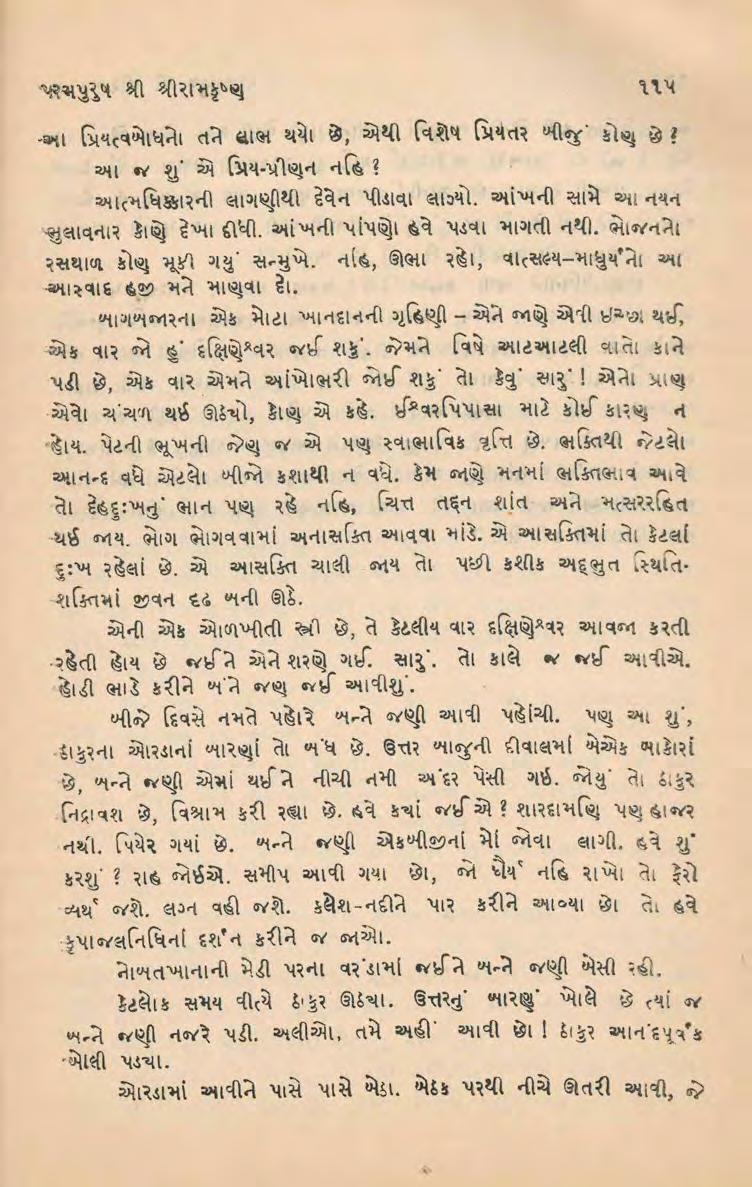 પરમપુરુષ શ્રી શ્રીરામકૃષ્ણ ૧૧૫
આ પ્રિયત્વબોધનો તને લાભ થયો છે, એથી વિશેષ પ્રિયતર બીજું કોણ છે ?
આ જ શું એ પ્રિય-પ્રીણન નહિ ?
આત્મધિક્કારની લાગણીથી દેવેન પીડાવા લાગ્યો. આંખની સામે આ નયન
ભુલાવનાર કોણે દેખા દીધી. આંખની પાંપણો હવે પડવા માગતી નથી. ભોજનનો
રસથાળ કોણ મૂકી ગયું સન્મુખે. નહિ, ઊભા રહો, વાત્સલ્ય–માધુર્યનો આ
આસ્વાદ હજી મને માણવા દો.
બાગબજારના એક મોટા ખાનદાનની ગૃહિણી – એને જાણે એવી ઇચ્છા થઈ,
એક વાર જો હું દક્ષિણેશ્વર જઈ શકું. જેમને વિષે આટઆટલી વાતો કાને
પડી છે, એક વાર એમને આંખોભરી જોઈ શકું તો કેવું સારું ! એનો પ્રાણ
એવો ચંચળ થઈ ઊઠ્યો, કોણ એ કહે. ઈશ્વરપિપાસા માટે કોઈ કારણ ન
હોય. પેટની ભૂખની જેમ જ એ પણ સ્વાભાવિક વૃત્તિ છે. ભક્તિથી જેટલો
આનન્દ વધે એટલો બીજો કશાથી ન વધે. કેમ જાણે મનમાં ભક્તિભાવ આવે
તો દેહદુઃખનું ભાન પણ રહે નહિ, ચિત્ત તદ્દન શાંત અને મત્સરરહિત
થઈ જાય. ભોગ ભોગવવામાં અનાસક્તિ આવવા માંડે. એ આસક્તિમાં તો કેટલાં
દુઃખ રહેલાં છે. એ આસક્તિ ચાલી જાય તો પછી કશીક અદ્ભુત સ્થિતિ-
શક્તિમાં જીવન દૃઢ બની ઊઠે.
એની એક ઓળખીતી સ્ત્રી છે, તે કેટલીય વાર દક્ષિણેશ્વર આવજા કરતી
રહેતી હોય છે જઈને એને શરણે ગઈ. સારું. તો કાલે જ જઈ આવીએ.
હોડી ભાડે કરીને બંને જણ જઈ આવીશું.
બીજે દિવસે નમતે પહોરે બન્ને જણી આવી પહોંચી. પણ આ શું,
ઠાકુરના ઓરડાનાં બારણાં તો બંધ છે. ઉત્તર બાજુની દીવાલમાં બેએક બાકોરાં
છે, બન્ને જણી એમાં થઈને નીચી નમી અંદર પેસી ગઈ. જોયું તો ઠાકુર
નિદ્રાવશ છે, વિશ્રામ કરી રહ્યા છે. હવે ક્યાં જઈએ ? શારદામણિ પણ હાજર
નથી. પિયેર ગયાં છે. બન્ને જણી એકબીજીનાં મોં જોવા લાગી. હવે શું
કરશું ? રાહ જોઈએ. સમીપ આવી ગયા છો, જો ધૈર્ય નહિ રાખો તો ફેરો
વ્યર્થ જશે. લગ્ન વહી જશે. કલેશ-નદીને પાર કરીને આવ્યા છો તો હવે
કૃપાજલનિધિનાં દર્શન કરીને જ જાઓ.
નોબતખાનાની મેડી પરના વરંડામાં જઈને બન્ને જણી બેસી રહી.
કેટલોક સમય વીત્યે ઠાકુર ઊઠ્યા. ઉત્તરનું બારણું ખોલે છે ત્યાં જ
બન્ને જણી નજરે પડી. અલીઓ, તમે અહીં આવી છો ! ઠાકુર આનંદપૂર્વક
બોલી પડ્યા.
ઓરડામાં આવીને પાસે પાસે બેઠા. બેઠક પરથી નીચે ઊતરી આવી, જે